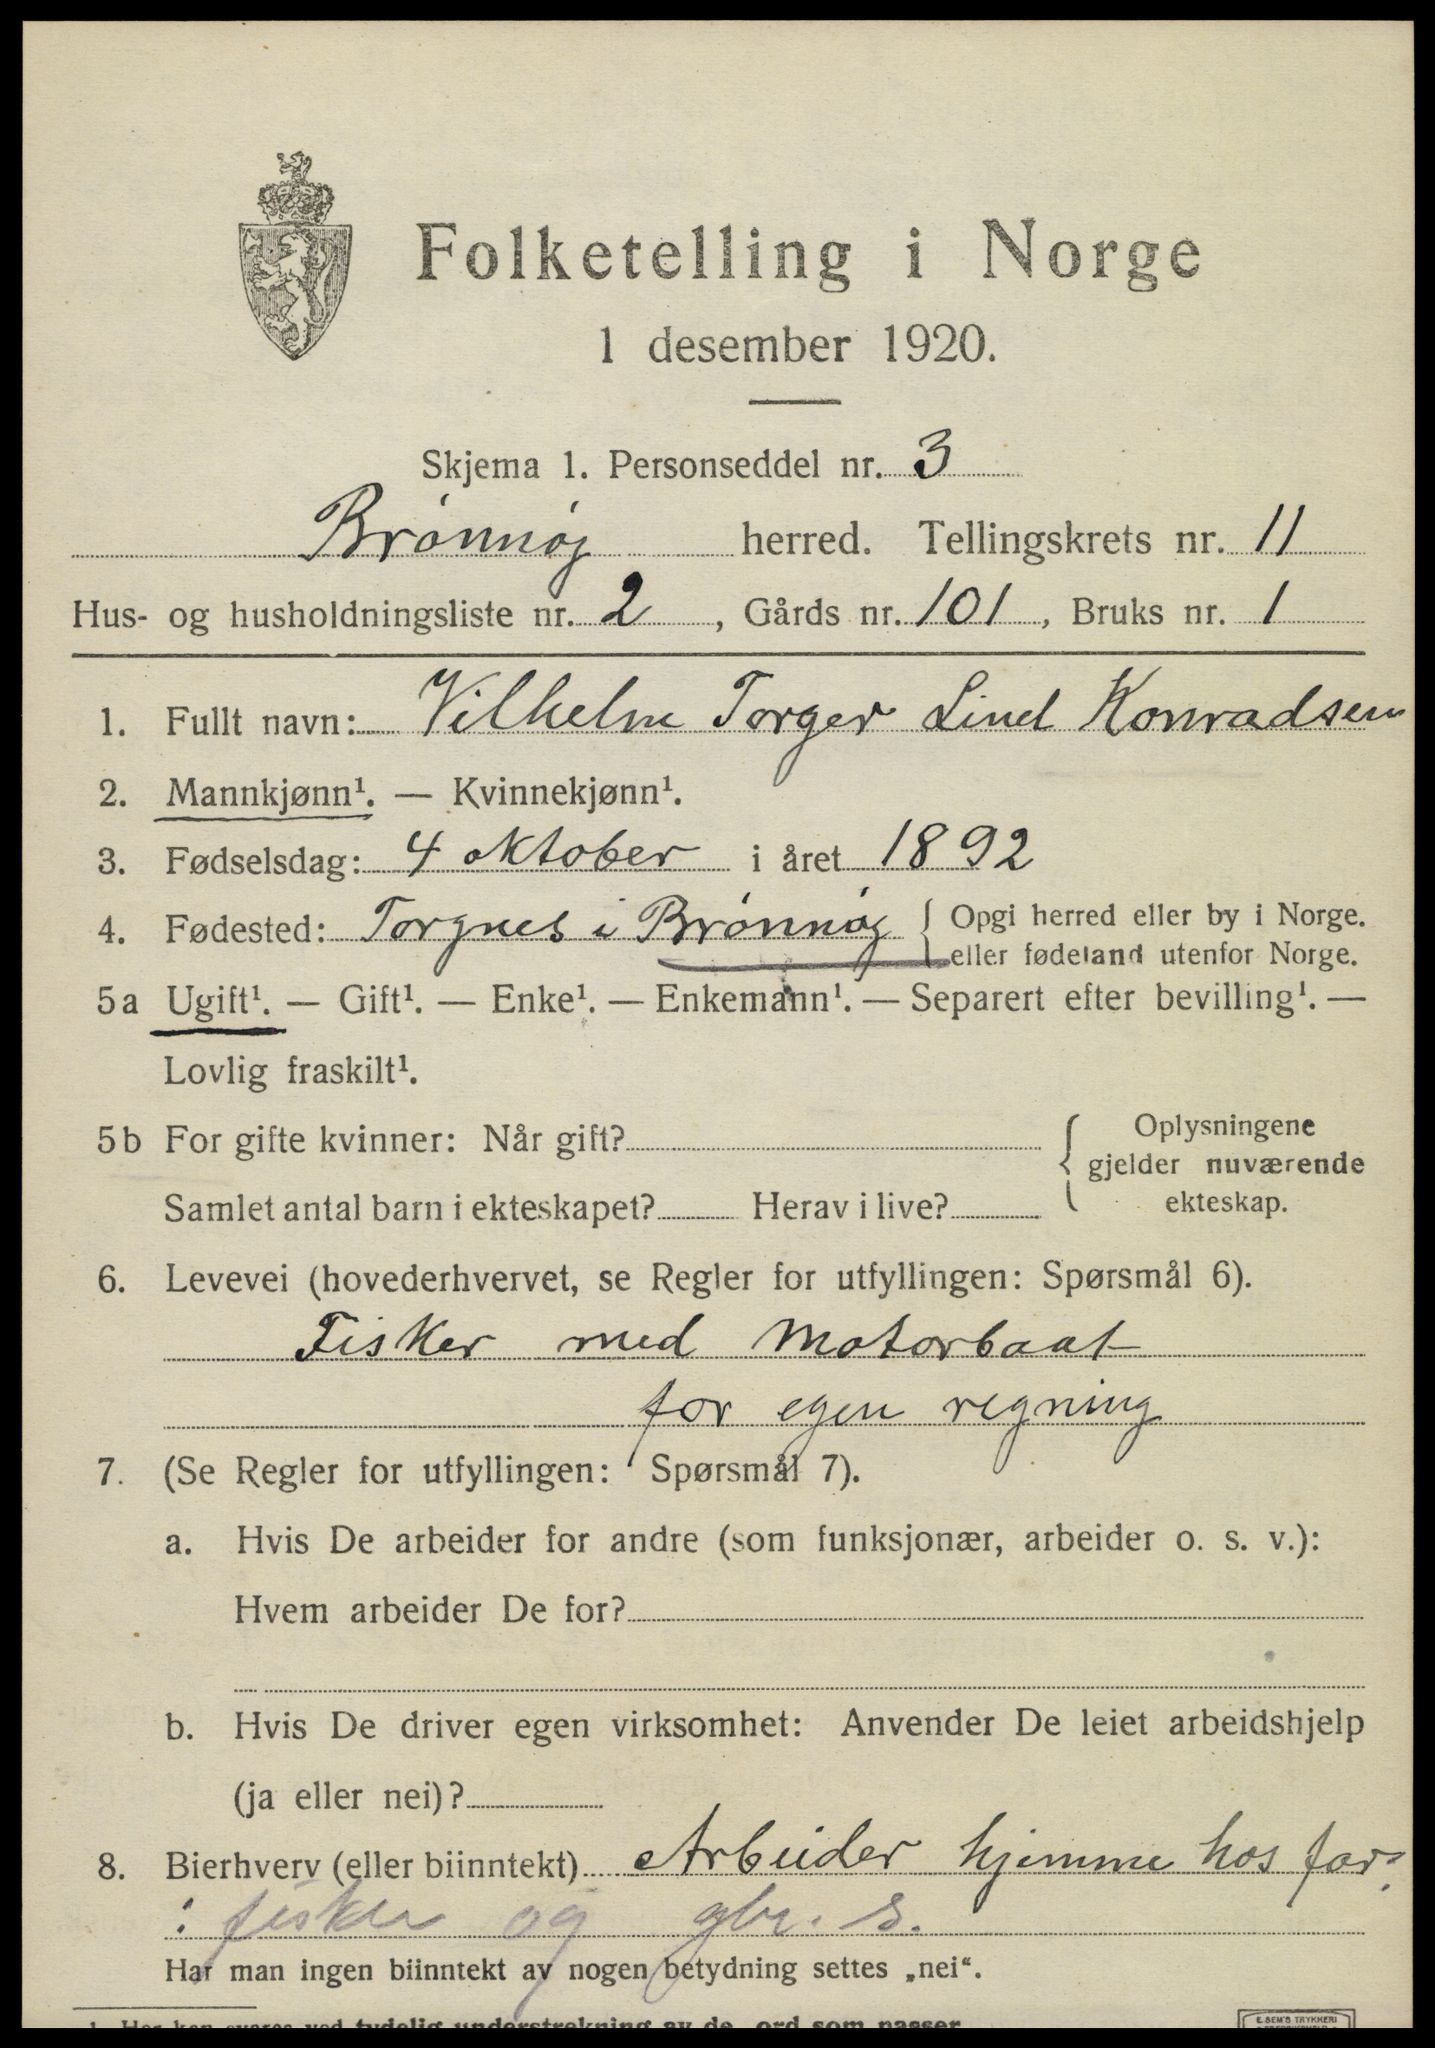 Folketelling i Norge
1 desember 1920.
Skjema 1. Personseddel nr. 3
Brönnöy herred. Tellingskrets nr. 11
Hus- og husholdningsliste nr. 2, Gårds nr. 101, Bruks nr. 1
1. Fullt navn: Vilhelm Torger Lind Konradsen
2. Mannkjønn¹. — Kvinnekjønn¹.
3. Fødselsdag: 4 oktober i året 1892
4. Fødested: Torgnes i Brönnöy { Opgi herred eller by i Norge.
eller fødeland utenfor Norge.
5a Ugift¹. — Gift¹. — Enke¹. — Enkemann¹. — Separert efter bevilling¹. —
Lovlig fraskilt¹.
5b For gifte kvinner: Når gift? { Oplysningene
gjelder nuværende
Samlet antal barn i ekteskapet? Herav i live? ekteskap.
6. Levevei (hovederhvervet, se Regler for utfyllingen: Spørsmål 6).
Fisker med Motorbaat
for egen regning
7. (Se Regler for utfyllingen: Spørsmål 7).
a. Hvis De arbeider for andre (som funksjonær, arbeider o. s. v.):
Hvem arbeider De for?
b. Hvis De driver egen virksomhet: Anvender De leiet arbeidshjelp
(ja eller nei)?
8. Bierhverv (eller biinntekt) Arbeider hjemme hos far
: fisker og gbr. s.
Har man ingen biinntekt av nogen betydning settes „nei“.
1. Her kan svares ved tydelig understrekning av de ord som passer.
E. SEM'S TRYKKERI